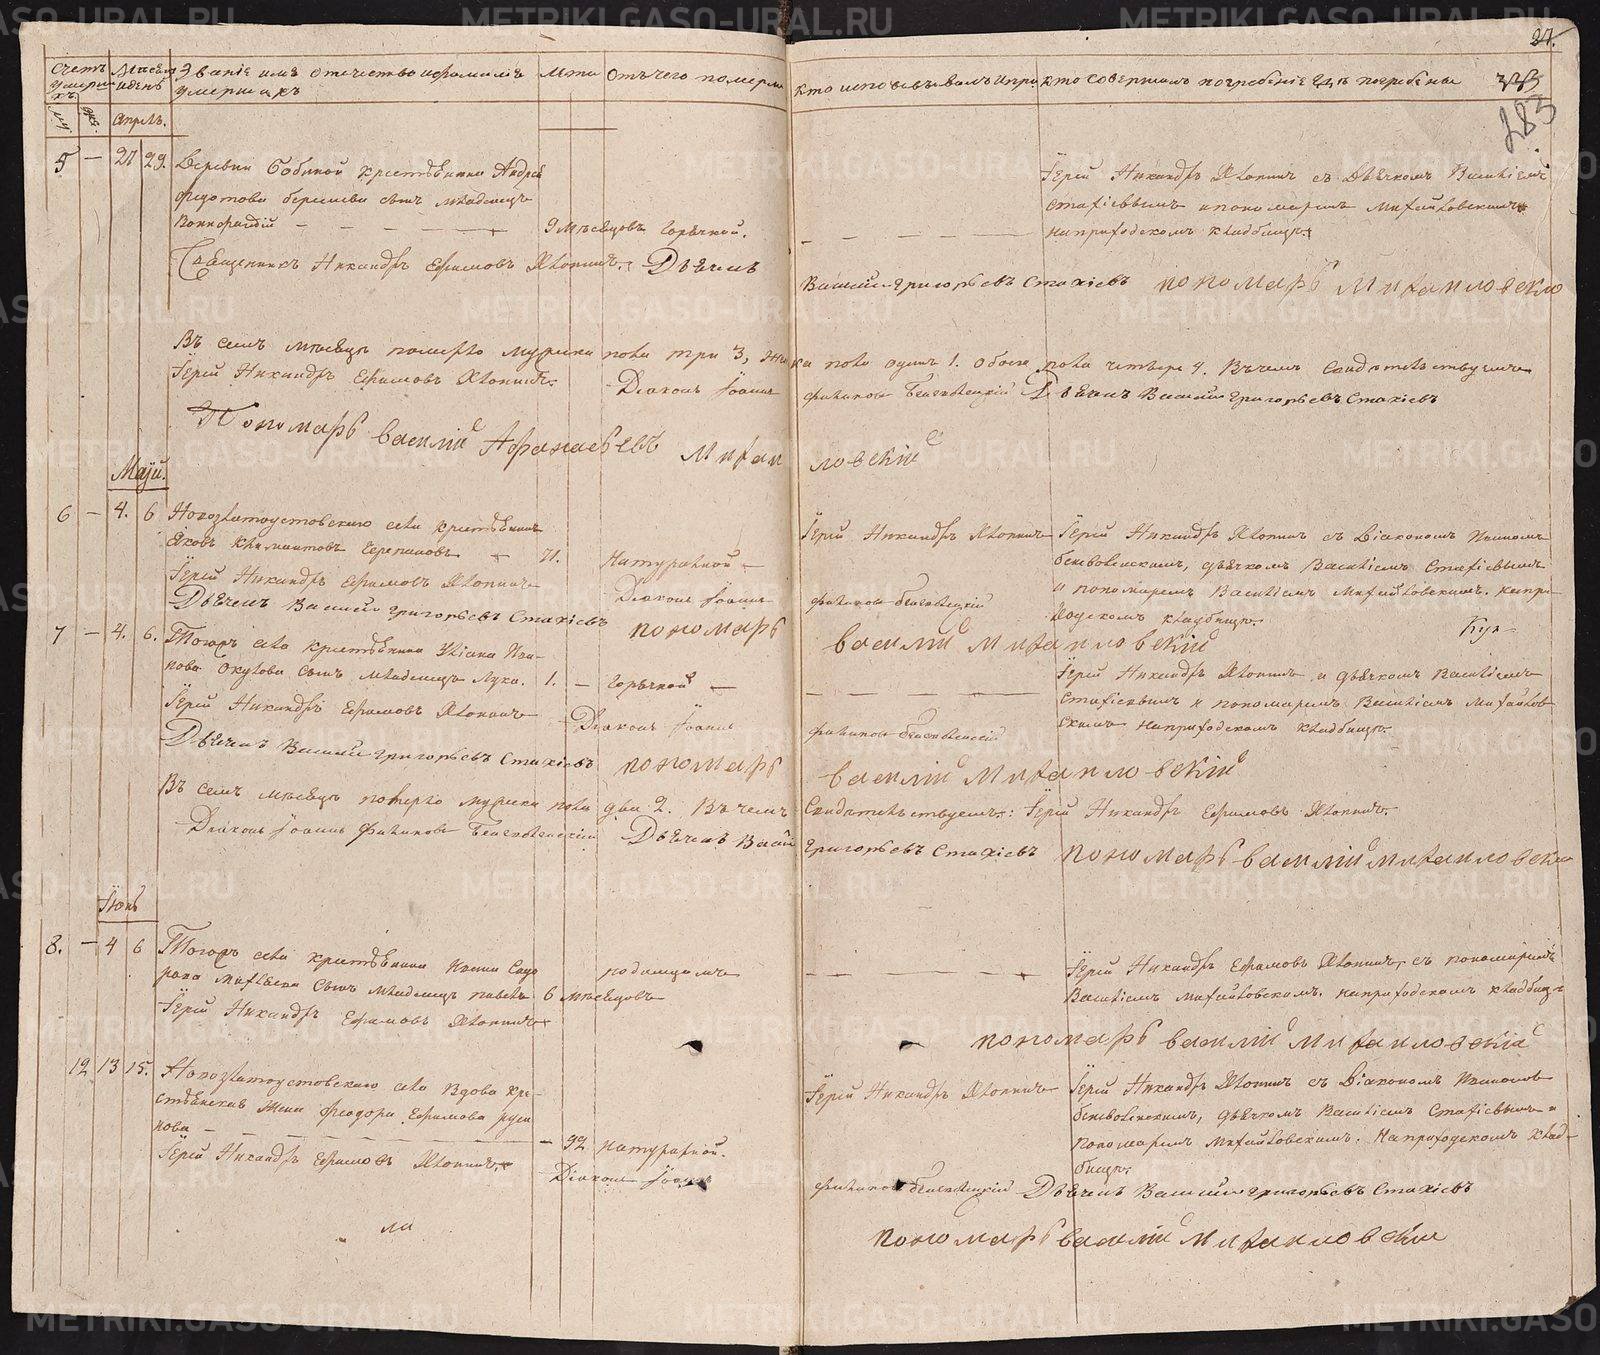 24.
Счетъ умершихъ
Мѣсяцъ и день
Званіе имя отечество и фамилія
умершихъ
Лѣта
Отъ чего померъ
Кто исповѣдывалъ и при
Кто совершалъ погребеніе и гдѣ погребены
183
Апрѣль.
5 — 27 29. Деревни крестьянина Андрея
Федотова сынъ младенецъ
9 мѣсяцовъ горячкой.
Іерей Никандръ Хлопинъ съ Дьячкомъ Василіемъ
Стахіевымъ и пономаремъ Михайловскимъ
на приходскомъ кладбищѣ.
Священникъ Никандръ Ефимовъ Хлопинъ. Дьячекъ
Василій Григорьевъ Стахіевъ пономарь Михаиловскій
Въ семъ мѣсяцѣ померло мужеска пола три 3, женска пола одинъ 1. Обоего пола четыре 4. Въ чемъ свидѣтельствуемъ
Іерей Никандръ Ефимовъ Хлопинъ. Діаконъ Іоаннъ Дьячекъ Василій Григорьевъ Стахіевъ
Пономарь Василій Афанасьевъ Михаиловскій
Маій.
6 — 4. 6 Новозлатоустовскаго села крестьянинъ
Яковъ Климантовъ Черепановъ — 71. Натуральной —
Іерей Никандръ Хлопинъ
Іерей Никандръ Хлопинъ съ Діакономъ Иваномъ
дьячкомъ Василіемъ Стахіевымъ
и пономаремъ Василіемъ Михайловскимъ. на при-
ходскомъ кладбищѣ.
Іерей Никандръ Ефимовъ Хлопинъ
Діаконъ Іоаннъ
Дьячекъ Василій Григорьевъ Стахіевъ пономарь Василій Михаиловскій
7 — 4. 6. Тогожъ села крестьянина Ива-
нова сынъ младенецъ Лука. 1. — Горячкой —
Іерей Никандръ Хлопинъ и дьячкомъ Василіемъ
Стахіевымъ и пономаремъ Василіемъ Михайлов-
скимъ на приходскомъ кладбищѣ.
Іерей Никандръ Ефимовъ Хлопинъ
Діаконъ Іоаннъ
Дьячекъ Василій Григорьевъ Стахіевъ пономарь Василій Михаиловскій
Въ семъ мѣсяцѣ померло мужеска пола два 2. Въ чемъ свидѣтельствуемъ: Іерей Никандръ Ефимовъ Хлопинъ.
Діаконъ Іоаннъ Дьячекъ Василій Григорьевъ Стахіевъ пономарь Василій Михаиловскій
Іюнь
8. — 4 6 Тогожъ села крестьянина
Матвѣева сынъ младенецъ Павелъ 6 мѣсяцовъ родимцомъ
Іерей Никандръ Ефимовъ Хлопинъ съ пономаремъ
Василіемъ Михайловскимъ. на приходскомъ кладбищѣ
Іерей Никандръ Ефимовъ Хлопинъ
пономарь Василій Михаиловскій
12 13 15. Новозлатоустовскаго села вдова кре-
стьянская жена Феодора Ефимова Руси-
нова — 92 натуральной.
Іерей Никандръ Хлопинъ
Іерей Никандръ Хлопинъ съ Діакономъ Иваномъ
дьячкомъ Василіемъ Стахіевымъ и
пономаремъ Михайловскимъ. На приходскомъ клад-
бищѣ.
Іерей Никандръ Ефимовъ Хлопинъ
Діаконъ Іоаннъ Дьячекъ Василій Григорьевъ Стахіевъ
пономарь Василій Михаиловскій
METRIKI.GASO-URAL.RU